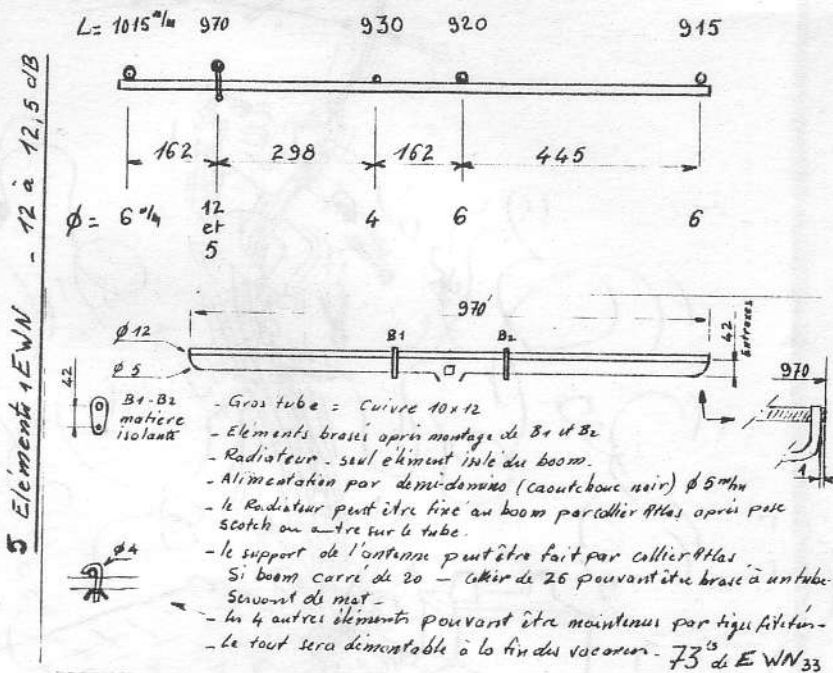 L= 1015 m/m 970 930 920 915
162 298 162 445
Ø= 6 m/m 12 et 5 4 6 6
5 Eléments 1EWN - 12 à 12,5 dB
970
Ø 12
B1
B2
42
Entraxes
Ø 5
42
B1-B2
matière
isolante
970
1
- Gros tube = Cuivre 10x12
- Eléments brasés après montage de B1 et B2
- Radiateur - seul élément isolé du boom.
- Alimentation par demi-domino (caoutchouc noir) Ø 5 m/m
- le Radiateur peut être fixé au boom par collier Atlas après pose
scotch ou autre sur le tube.
- le support de l'antenne peut être fait par collier Atlas
Si boom carré de 20 - collier de 26 pouvant être brasé à un tube
Servant de mat -
Ø 4
- les 4 autres éléments pouvant être maintenus par tiges
- Le tout sera démontable à la fin des vacances - 73's de E WN33